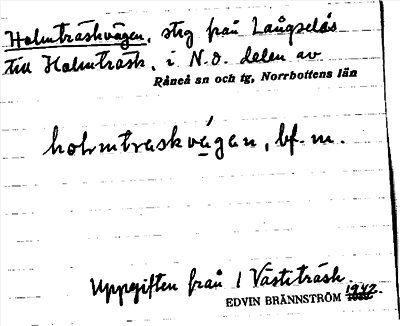 Holmträskvägen, stig från Långselås
till Holmträsk, i N.O. delen av
Råneå sn och tg, Norrbottens län
holmtraskvágan, bf. m.
Uppgiften från 1 Västiträsk.
EDVIN BRÄNNSTRÖM 1942.